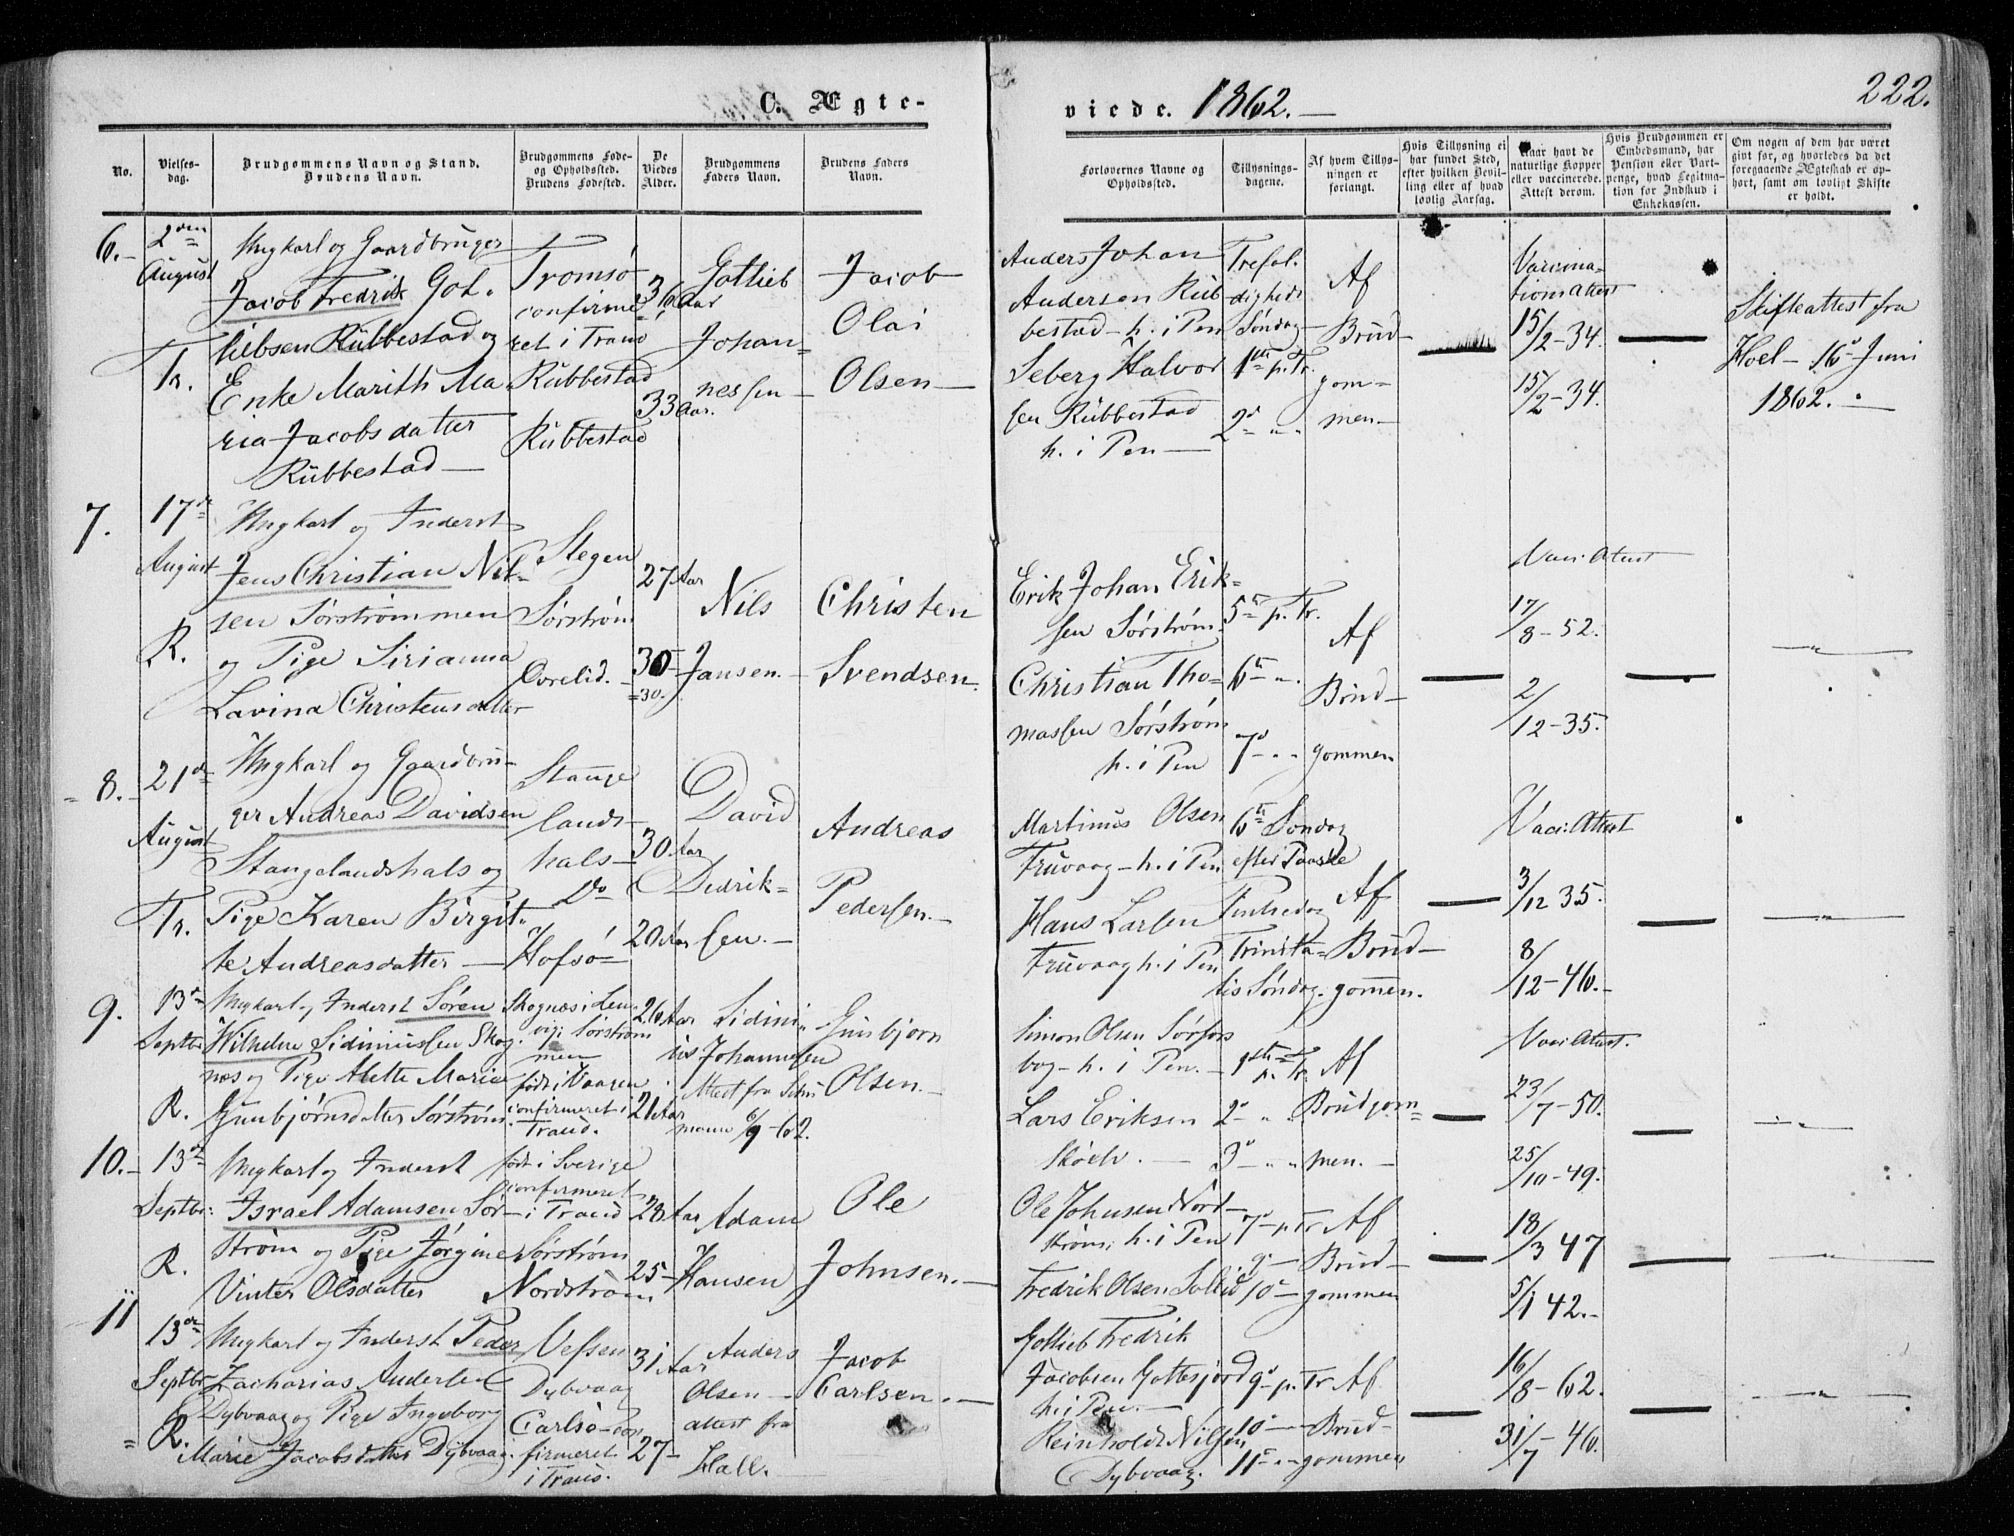 C. Ægte-
viede. 1862.
222.
No.
Vielses-
dag.
Brudgommens Navn og Stand.
Brudens Navn.
Brudgommens Føde-
og Opholdssted.
Brudens Fødested.
De
Viedes
Alder.
Brudgommens
Faders Navn.
Brudens Faders
Navn.
Forlovernes Navne og
Opholdssted.
Tillysnings-
dagene.
Af hvem Tillys-
ningen er
forlangt.
Hvis Tillysning ei
har fundet Sted,
efter hvilken Bevil-
ling eller af hvad
lovlig Aarsag.
Naar havt de
naturlige Kopper
eller vaccinerede.
Attest derom.
Hvis Brudgommen er
Embedsmand, har
Pension eller Vart-
penge, hvad Legitima-
tion for Indskud i
Enkekassen.
Om nogen af dem har været
gift før, og hvorledes da det
foregaaende Ægteskab er op-
hørt, samt om lovligt Skifte
er holdt.
6.
2den
August
Tr.
Ungkarl og Gaardbruger
Jacob Fredrik Got-
liebsen Rubbestad og
Enke Marith Ma-
ria Jacobsdatter
Rubbestad
Tromsø
confirme-
ret i Tranø
Rubbestad
Rubbestad
36 Aar
33 Aar.
Gotlieb
Johan-
nessen
Jacob
Olai
Olsen
Anders Johan
Andersen Rub-
bestad - h. i Pen
Seberg Halvor
sen Rubbestad
h. i Pen
Trefol-
digheds
Søndag
1ste p. Tr.
2d " "
Af
Brud-
gom-
men
Vaccina-
tionsattest
15/2-34.
15/2-34.
Skifteattest fra
Hoel - 16d Juni
1862.
7.
17de
August
R.
Ungkarl og Inderst
Jens Christian Nil-
sen Sørstrømmen
og Pige Sirianna
Lavina Christensdatter
Stegen
Sørstrøm
Ovrelid.
27 Aar
30
=30.
Nils
Jansen.
Christen
Svendsen.
Erik Johan Erik-
sen Sørstrøm.
Christian Tho-
massen Sørstrøm
h. i Pen
5te p. Tr.
6te "
7d " "
Af
Brud-
gommen
Vacc. Attest
17/8-52.
2/12-35.
8.
21de
August
Tr.
Ungkarl og Gaardbru-
ger Andreas Davidsen
Stangelandshals og
Pige Karen Birgit-
te Andreasdatter
Stange
lands-
hals
Do
Hofsø
30 Aar
20 Aar
David
Didrik-
sen.
Andreas
Pedersen.
Martinus Olsen
Truvaag - h. i Pen
Hans Larsen
Truvaag h. i Pen
6te Søndag
efter Paaske
Pintsedag
Trinita-
tis Søndag.
Af
Brud-
gommen.
Vacc. Attest
3/12 35.
8/12-46.
9.
13de
Septbr.
R.
Ungkarl og Inderst Søren
Wilhelm Sidiniussen Skog-
næs og Pige Alette Marie
Gunbjørnsdatter Sørstrøm.
Skognæs i Len-
vig; Sørstrøm
men
født i Vaagen
confirmeret i
Tranø.
26 Aar
21 Aar
Sidini-
us Johannesen
Attest fra
6/9-62.
Gunbjørn
Olsen.
Simon Olsen Sørfors
bog - h. i Pen.
Lars Eriksen
1ste p. Tr.
2d " "
3d " "
Af
Brudgom-
men.
Vacc. Attest.
23/7-50.
25/10-49.
10.
13de
Septbr:
R.
Ungkarl og Inderst
Israel Adamsen Sør-
strøm og Pige Jørgine
Vinter Olsdatter
født i Sverige
confirmeret
i Tranø
Sørstrøm
Nordstrøm
28 Aar
25
Adam
Hansen
Ole
Johnsen.
Ole Johnsen Nord-
strøm; h. i Pen
Fredrik Olsen Sollid
7d p. Tr
9d
10d
Af
Brud-
gommen
18/3 47
5/1 42.
11
13de
Septbr
R.
Ungkarl og Inderst Peder
Zacharias Andersen
Dybvaag og Pige Ingeborg
Marie Jacobsdatter Dybvaag.
Vefsen
Dybvaag
Carlsø - con
firmeret
i Tranø.
31 Aar
27
Anders
Olsen
attest fra
Hall.
Jacob
Carlsen.
Gotlieb Fredrik
Jacobsen Gottesjord
h. i Pen.
Reinholdt Nilsen
Dybvaag.
9d p. Tr
10d
11d " "
Af
Brud-
gommen
16/8-62.
31/7-46.